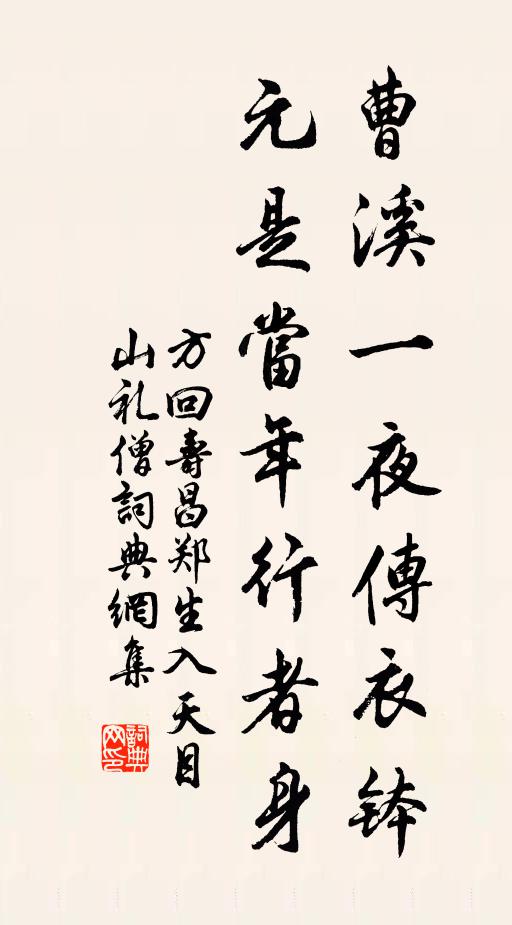 曹溪一夜傳衣鉢
元是當年行者身
方回壽昌郑生入天目
山礼僧詞典網集
詞典
网印